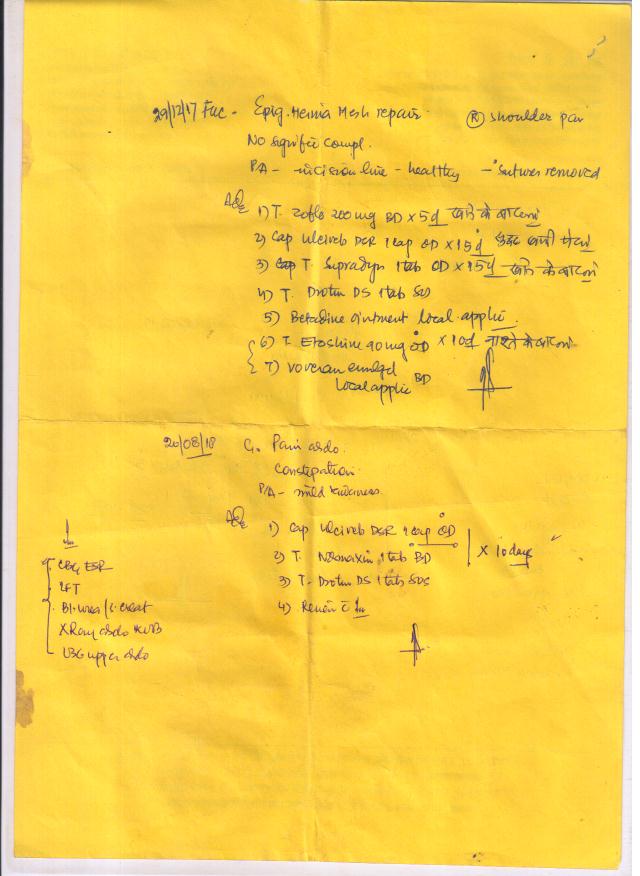 29/12/17 Fuc - Epig. Hernia Mesh repair. (R) shoulder pain
No signific compl.
P/A - incision line - healthy - Sutures removed
Adv
1) T. Zoflo 200 mg BD x 5d खाने के बाद
2) Cap Ulcireb DSR 1 cap OD x 15d सुबह खाली पेट
3) T. Supradyn 1 tab OD x 15d खाने के बाद
4) T. Drotin DS 1 tab SOS
5) Betadine ointment local applic
6) T. Etoshine 90 mg OD x 10d नाश्ते के बाद
7) Voveran emulgel
Local applic BD
20/08/18 C/o Pain abdo.
Constipation
P/A - mild
Adv
1) Cap Ulcireb DSR 1 cap OD
2) T. 1 tab BD x 10 days
3) T. Drotin DS 1 tab SOS
4) Review c̄
CBC, ESR
LFT
Bl. urea / S. creat
X Ray abdo KUB
USG upper abdo